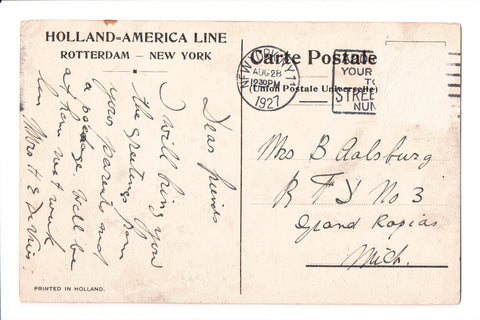 HOLLAND-AMERICA LINE
ROTTERDAM — NEW YORK
Dear friends
I will bring you
the greetings from
your parents and
a package. Will be
at home next week
Mrs. H E De Vries.
PRINTED IN HOLLAND.
Carte Postale
(Union Postale Universelle)
NEW YORK, N.Y.
AUG 28
1230PM
1927
YOUR
TO
STREE
NUM
Mrs B Aalsburg
R F D No 3
Grand Rapids
Mich.